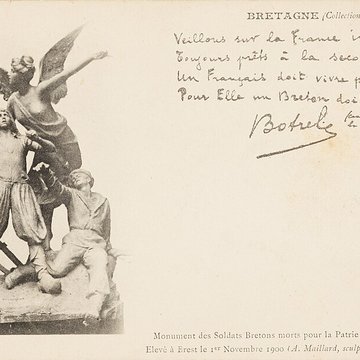 BRETAGNE (Collection
Veillons sur la France
Toujours prêts à la seco
Un Français doit vivre p
Pour Elle un Breton doi
Botrel
Monument des Soldats Bretons morts pour la Patrie
Elevé à Brest le 1er Novembre 1900 (A. Maillard, sculp